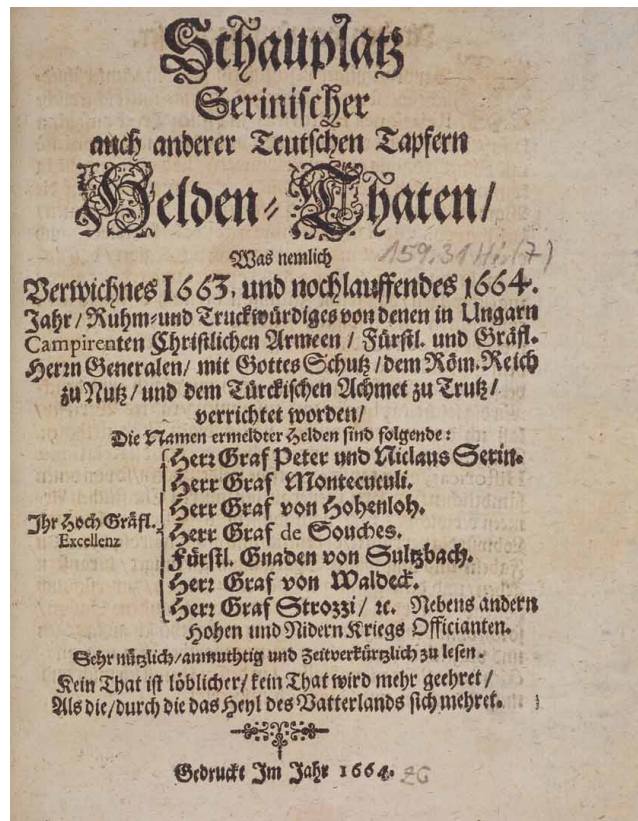 Schauplatz
Serinischer
auch anderer Teutschen Tapfern
Helden- Thaten/
Was nemlich
159.31 Hi (7)
Verwichnes 1663. und nochlauffendes 1664.
Jahr/Ruhm-und Truckwürdiges von denen in Ungarn
Campirenten Christlichen Armeen / Fürstl. und Gräfl.
Herrn Generalen/ mit Gottes Schutz/dem Röm. Reich
zu Nutz/und dem Türckischen Achmet zu Trutz/
verrichtet worden/
Die Namen ermeldter Helden sind folgende:
Herr Graf Peter und Niclaus Serin.
Herr Graf Montecuculi.
Herr Graf von Hohenloh.
Ihr Hoch Gräfl. Excellenz
Herr Graf de Souches.
Fürstl. Gnaden von Sultzbach.
Herr Graf von Waldeck.
Herr Graf Strozzi/ ꝛc. Nebens andern
Hohen und Nidern Kriegs Officianten.
Sehr nützlich/anmuthtig und Zeitverkürtzlich zu lesen.
Kein That ist löblicher/kein That wird mehr geehret/
Als die/durch die das Heyl des Vatterlands sich mehret.
Gedruckt Im Jahr 1664.